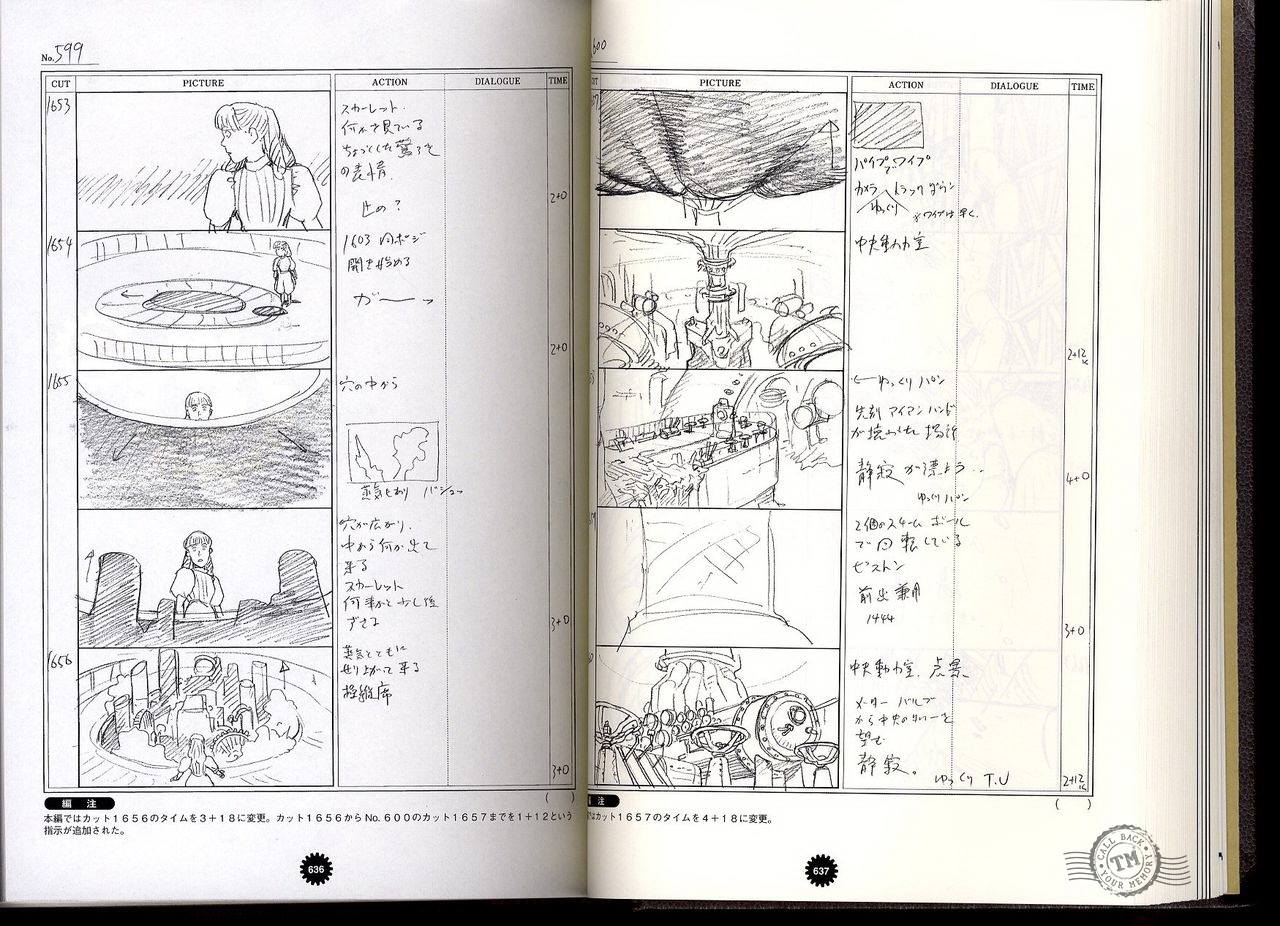 No. 599
CUT PICTURE ACTION DIALOGUE TIME
1653
スカーレット
何かを見ている
ちょっとした驚き
の表情
2+0
1654
1603 同ポジ
開き始める
ガ――ッ
2+0
1655
穴の中から
蒸気もあり バシューッ
穴が広がり、
中から何か出て
来る
スカーレット
何事かと少し後
ずさる
3+0
1656
蒸気とともに
せり上がって来る
操縦席
3+0
( )
編 注
本編ではカット1656のタイムを3+18に変更。カット1656からNo.600のカット1657までを1+12という
指示が追加された。
636
600
PICTURE ACTION DIALOGUE TIME
パイプでワイプ
カメラ トラックダウン
ゆっくり
※ワイプは早く
中央動力室
2+12
←ゆっくり パン
先刻 アイアンハンド
が壊られた 場所
静寂が漂よう..
ゆっくりパン
4+0
2個のスチームボール
で回転している
ピストン
前出兼用
1444
3+0
中央動力室 点景
メーター バルブ
から中央の
望む
静寂。
ゆっくり T.U
2+12
( )
注
はカット1657のタイムを4+18に変更。
637
CALL BACK
TM
YOUR MEMORY